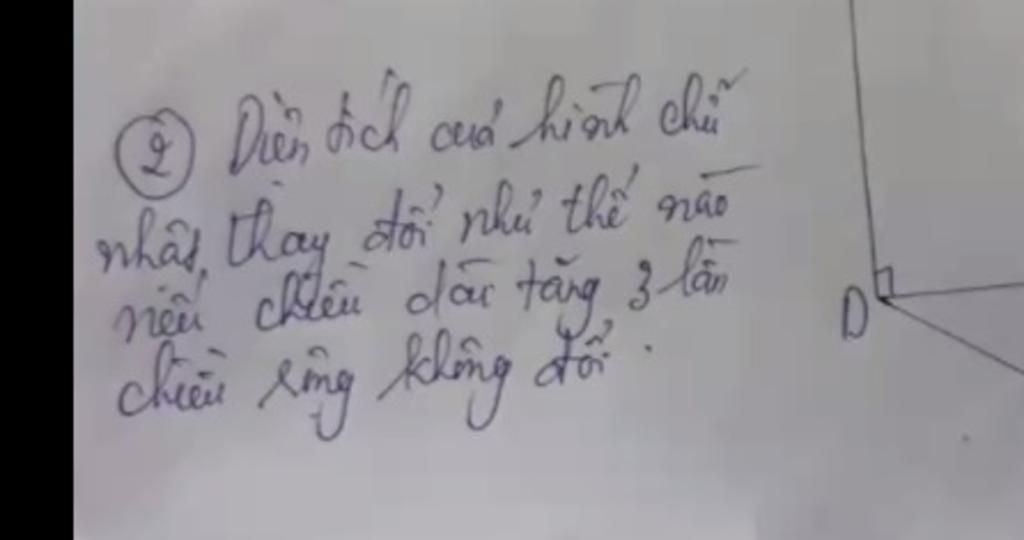 ② Diện tích của hình chữ
nhật thay đổi như thế nào
nếu chiều dài tăng 3 lần
chiều rộng không đổi.
D